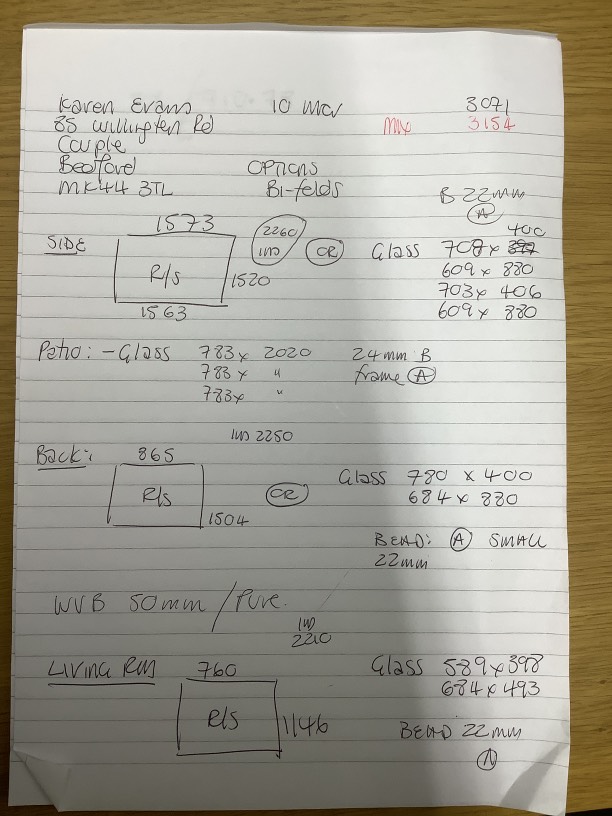 Karen Evans 10 Mar 3071
85 Willington Rd Max 3154
Couple
Bedford OPTIONS
MK44 3TL Bi-folds B 22mm
A
SIDE 1573 2260 IND CR Glass 708 x 397 400
R/s 1520 609 x 880
703 x 406
1563 609 x 880
Patio: - Glass 783 x 2020 24mm B
783 x " frame A
783 x "
IND 2250
Back: 865 Glass 780 x 400
R/s CR 684 x 880
1504
BEAD: A SMALL
22mm
WVB 50mm / Pure.
IND
2210
LIVING RM 760 Glass 589 x 398
684 x 493
R/S 1146 BEAD 22mm